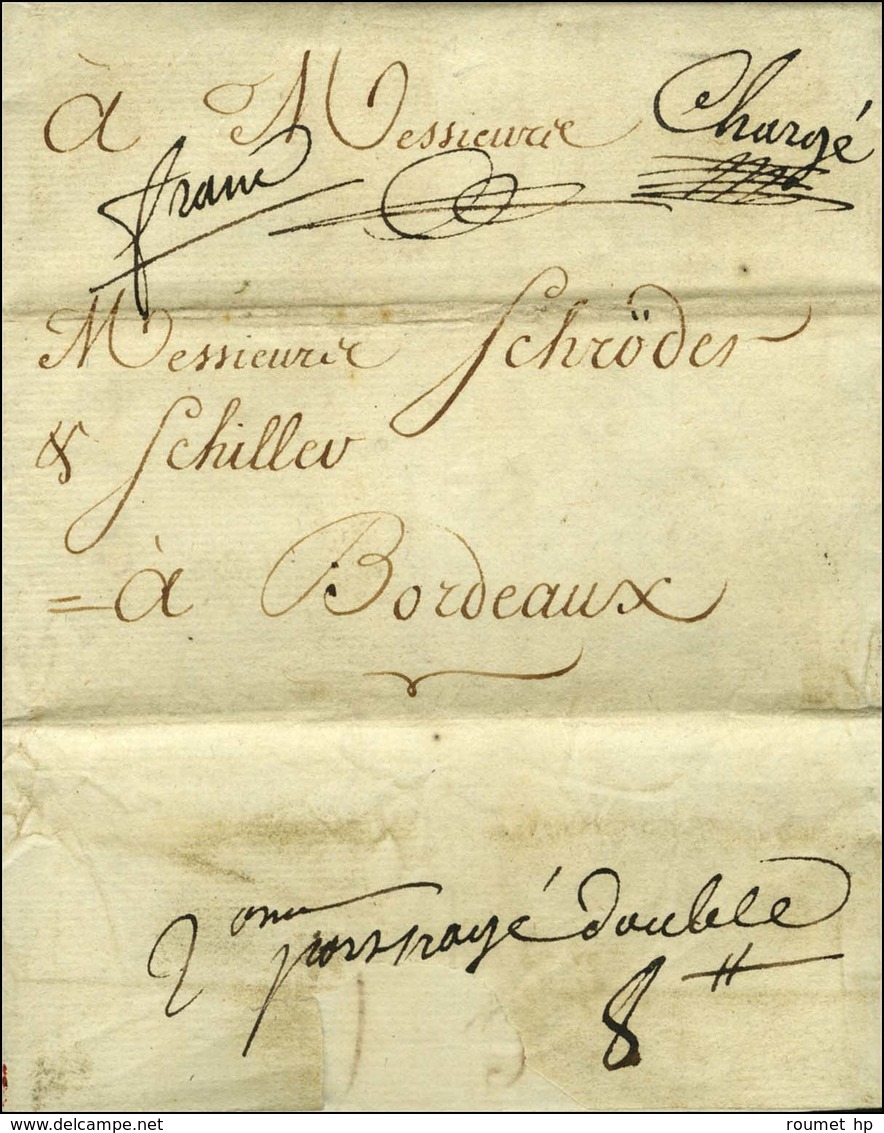 à Messieurs Chargé
franc
Messieurs Schröder
& Schiller
= à Bordeaux
2 onces port payé double
8 ʰ
delcampe.net
roumet hp